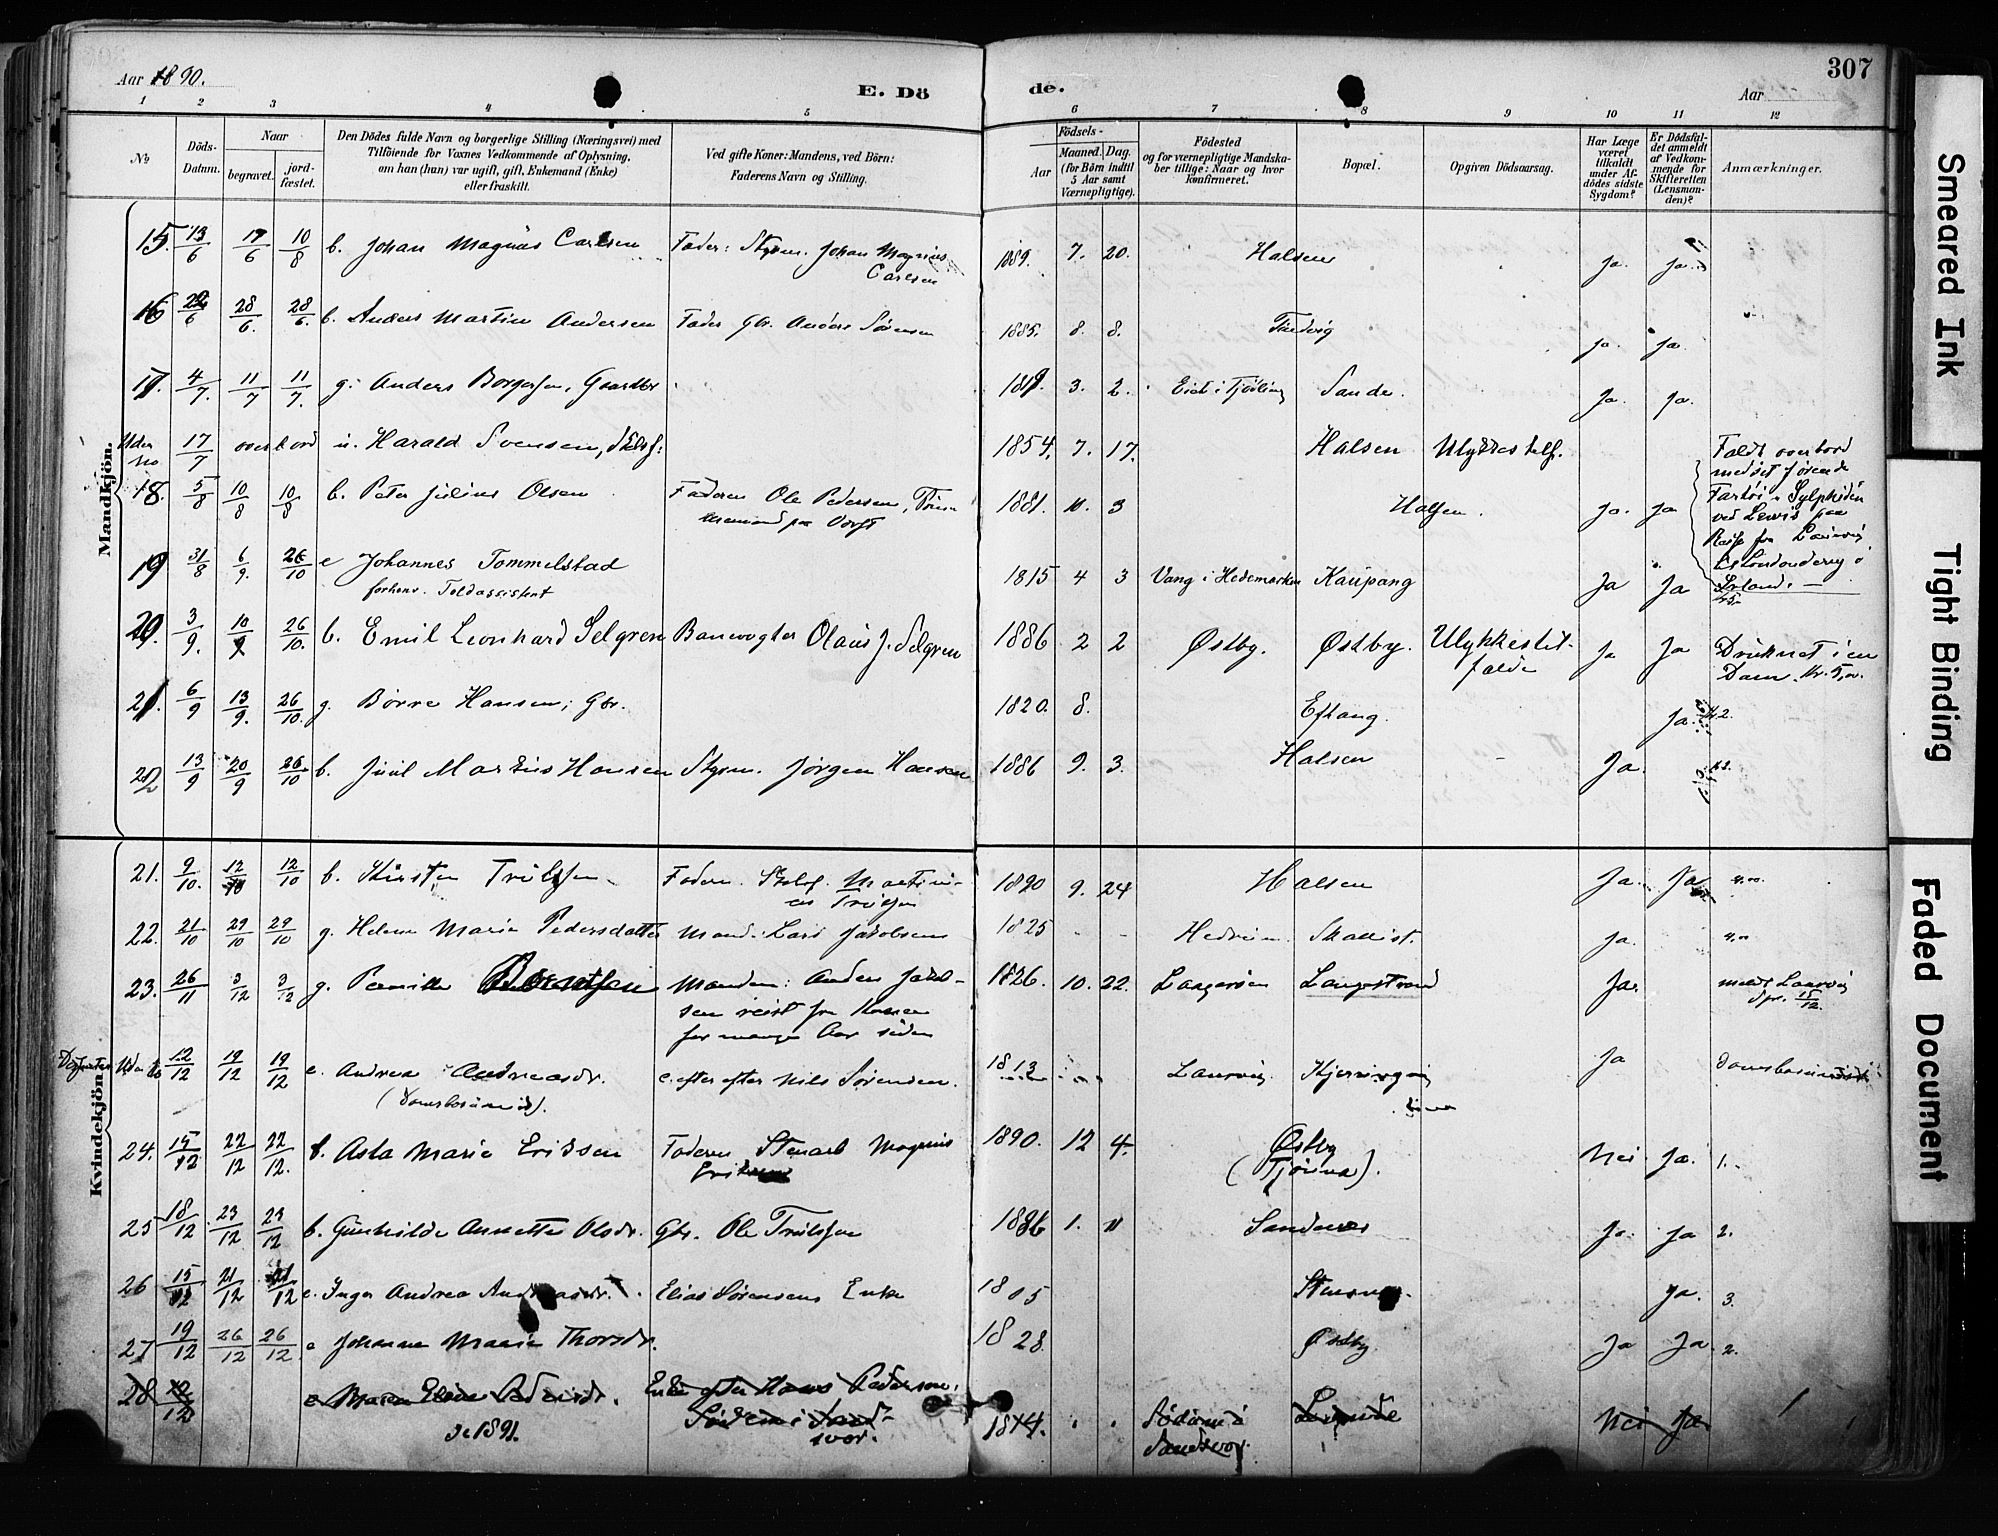 Aar 1890.
E. Dö
de.
Aar
307
1 2 3 4 5 6 7 8 9 10 11 12
No
Döds-
Datum.
Naar
begravet.
jord-
fæstet.
Den Dödes fulde Navn og borgerlige Stilling (Næringsvei) med
Tilföiende for Voxnes Vedkommende af Oplysning,
om han (hun) var ugift, gift, Enkemand (Enke)
eller fraskilt.
Ved gifte Koner: Mandens, ved Börn:
Faderens Navn og Stilling.
Födsels-
Aar
Maaned. Dag.
(for Börn indtil
5 Aar samt
Værnepligtige).
Födested
og for værnepligtige Mandska-
ber tillige: Naar og hvor
konfirmeret.
Bopæl.
Opgiven Dödsaarsag.
Har Læge
været
tilkaldt
under Af-
dödes sidste
Sygdom?
Er Dödsfal-
det anmeldt
af Vedkom-
mende for
Skifteretten
(Lensman-
den)?
Anmærkninger.
Mandkjön.
15. 13/6 17/6 10/8 b. Johan Magnus Carlsen Fader: Styrm. Johan Magnus
Carlsen 1889. 7. 20. Halsen Ja. Ja.
16 22/6 28/6. 28/6. b. Anders Martin Andersen Fader Gbr. Anders Sörensen 1885. 8. 8. Ja. Ja.
17. 4/7. 11/7 11/7. g. Anders Borgersen, Gaardbr 1819. 3. 2. Eide i Tjölling Sande. Ja. Ja.
Uden
No 17/7 overbord u. Harald Svensen, 1854. 7. 17. Halsen Ulykkestilf.
Faldt overbord
med det förende
Fartöi "Sylphiden"
ved Lewis paa
Reise fra Laurvig
til Londonderry i
Irland.
18. 5/8 10/8 10/8 b. Peter Julius Olsen Faderen Ole Pedersen, Tömmermand paa Værft 1881. 10. 3 Halsen. Ja. Ja
19 31/8 6/9. 26/10 e Johannes Tommelstad
forhenv. Toldassistent 1815 4 3 Vang i Hedemarken Kaupang Ja Ja
20. 3/9. 10/9 26/10. b. Emil Leonhard Selgren Banevogter Olaus J. Selgren 1886 2 2 Østby. Østby. Ulykkestil-
fælde Ja Ja Druknet i en
Dam.
21. 6/9 13/9. 26/10. g. Börre Hansen, Gbr. 1820. 8. Eftang. Ja. Kr 2.
22 13/9 20/9 26/10 b. Juul Markus Hansen Styrm. Jörgen Hansen 1886 9. 3. Halsen Ja.
Kvindekjön.
21. 9/10. 12/10 12/10 b. Kirsten Trulsen Faderen. Martini-
us Trulsen 1890 9. 24 Halsen Ja. Ja 4.00
22. 21/10 29/10 29/10 g. Helene Marie Pedersdatter Mand: Lars Jakobsen 1825 - - Hedrum. Skallist. Ja. 4.00
23. 26/11 3/12 3/12 g. Pernille Berntsen Manden: Anders Jakob-
sen reist fra Konen
for mange Aar siden 1826. 10. 22. Langesund Langestrand Ja. meldt Laurvig
15/12.
Uden No 12/12 19/12 19/12 e. Andrea Andreasdr.
e. efter Nils Sörensen. 1813 Laurvig. Ja
24. 15/12 22/12 22/12. b. Asta Marie Eriksen Faderen Stenarb Magnus
Eriksen 1890. 12 4. Østby
(Tjönna). Nei Ja. 1.-
25 18/12 23/12 23/12 b. Gunhilde Annette Olsdr. Gbr. Ole Trulsen 1886 1. 11 Sandenes Ja. Ja 2.
26 15/12 21/12 21/12 e. Inger Andrea Andreasdr. Elias Sörensens Enke 1805 Ja. 3.
27 19/12 26/12 26/12. e Johanne Marie Thorsdr. 1828. Østby Ja Ja. 2.
28 e Maren Pedersdr. Enke efter Hans Pedersen,
1814. Nei Ja.
se 1891.
Smeared Ink
Tight Binding
Faded Document